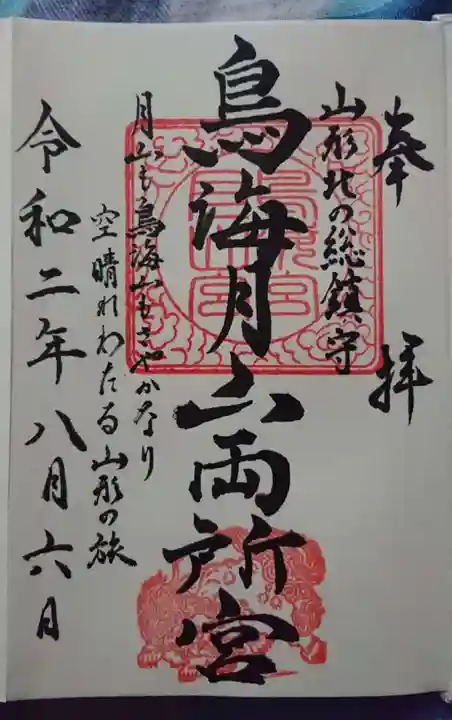 奉拝
山形北の総鎮守
鳥海月山両所宮
月山も鳥海山もさやかなり
空晴れわたる山形の旅
令和二年八月六日